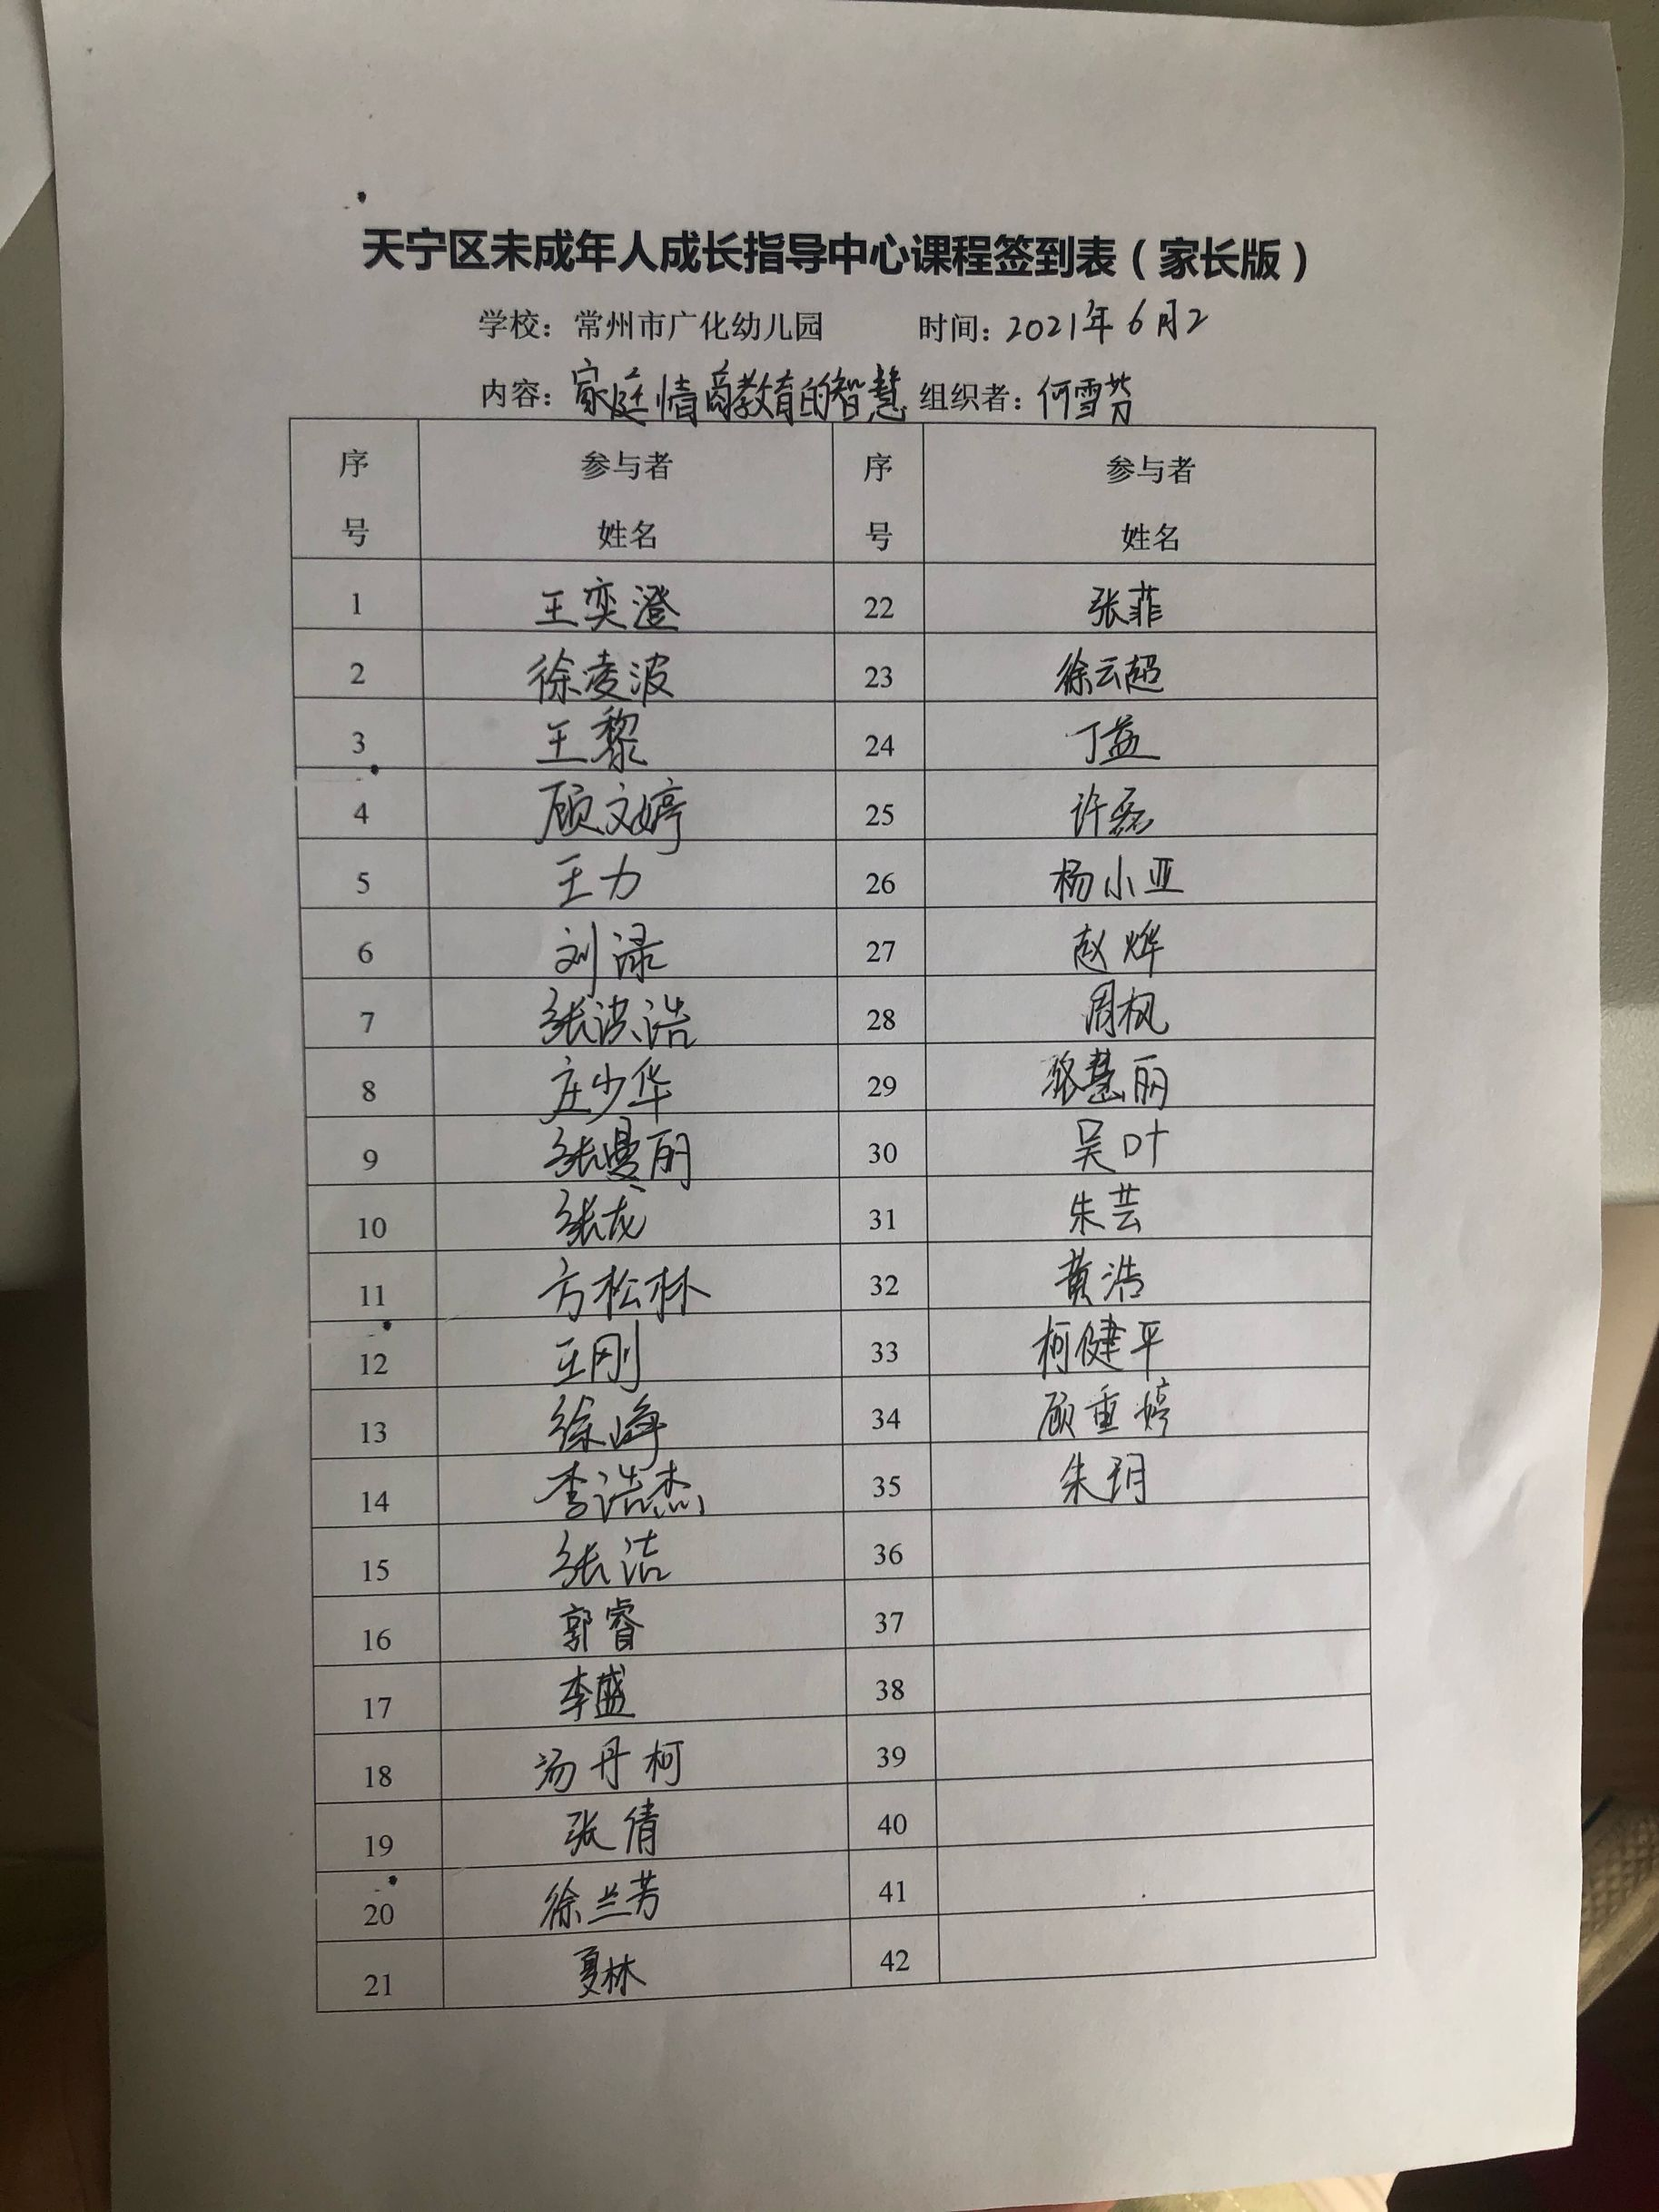 天宁区未成年人成长指导中心课程签到表（家长版）
学校：常州市广化幼儿园 时间：2021年6月2
内容：家庭情商教育的智慧 组织者：何雪芳
序号 参与者姓名 序号 参与者姓名
1 王奕澄 22 张菲
2 徐凌波 23 徐云超
3 王黎 24 丁益
4 顾文婷 25 许磊
5 王力 26 杨小亚
6 刘渌 27 赵烨
7 张洪浩 28 周枫
8 庄少华 29 慧丽
9 张曼丽 30 吴叶
10 张龙 31 朱芸
11 方松林 32 黄浩
12 王刚 33 柯健平
13 徐峥 34 顾重婷
14 李浩杰 35 朱玥
15 张洁 36
16 郭睿 37
17 李盛 38
18 汤丹柯 39
19 张倩 40
20 徐兰芳 41
21 夏林 42